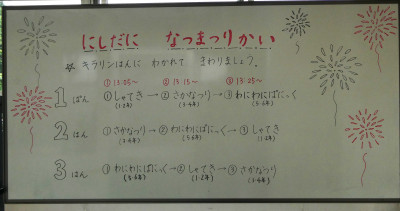 にしだに なつまつりかい
☆ キラリンはんに わかれて まわりましょう。
① 13:05〜 ② 13:15〜 ③ 13:25〜
1 ぱん ① しゃてき → ② さかなつり → ③ わにわにぱにっく
(1・2年) (3・4年) (5・6年)
2 はん ① さかなつり → ② わにわにぱにっく → ③ しゃてき
(3・4年) (5・6年) (1・2年)
3 ぱん ① わにわにぱにっく → ② しゃてき → ③ さかなつり
(5・6年) (1・2年) (3・4年)